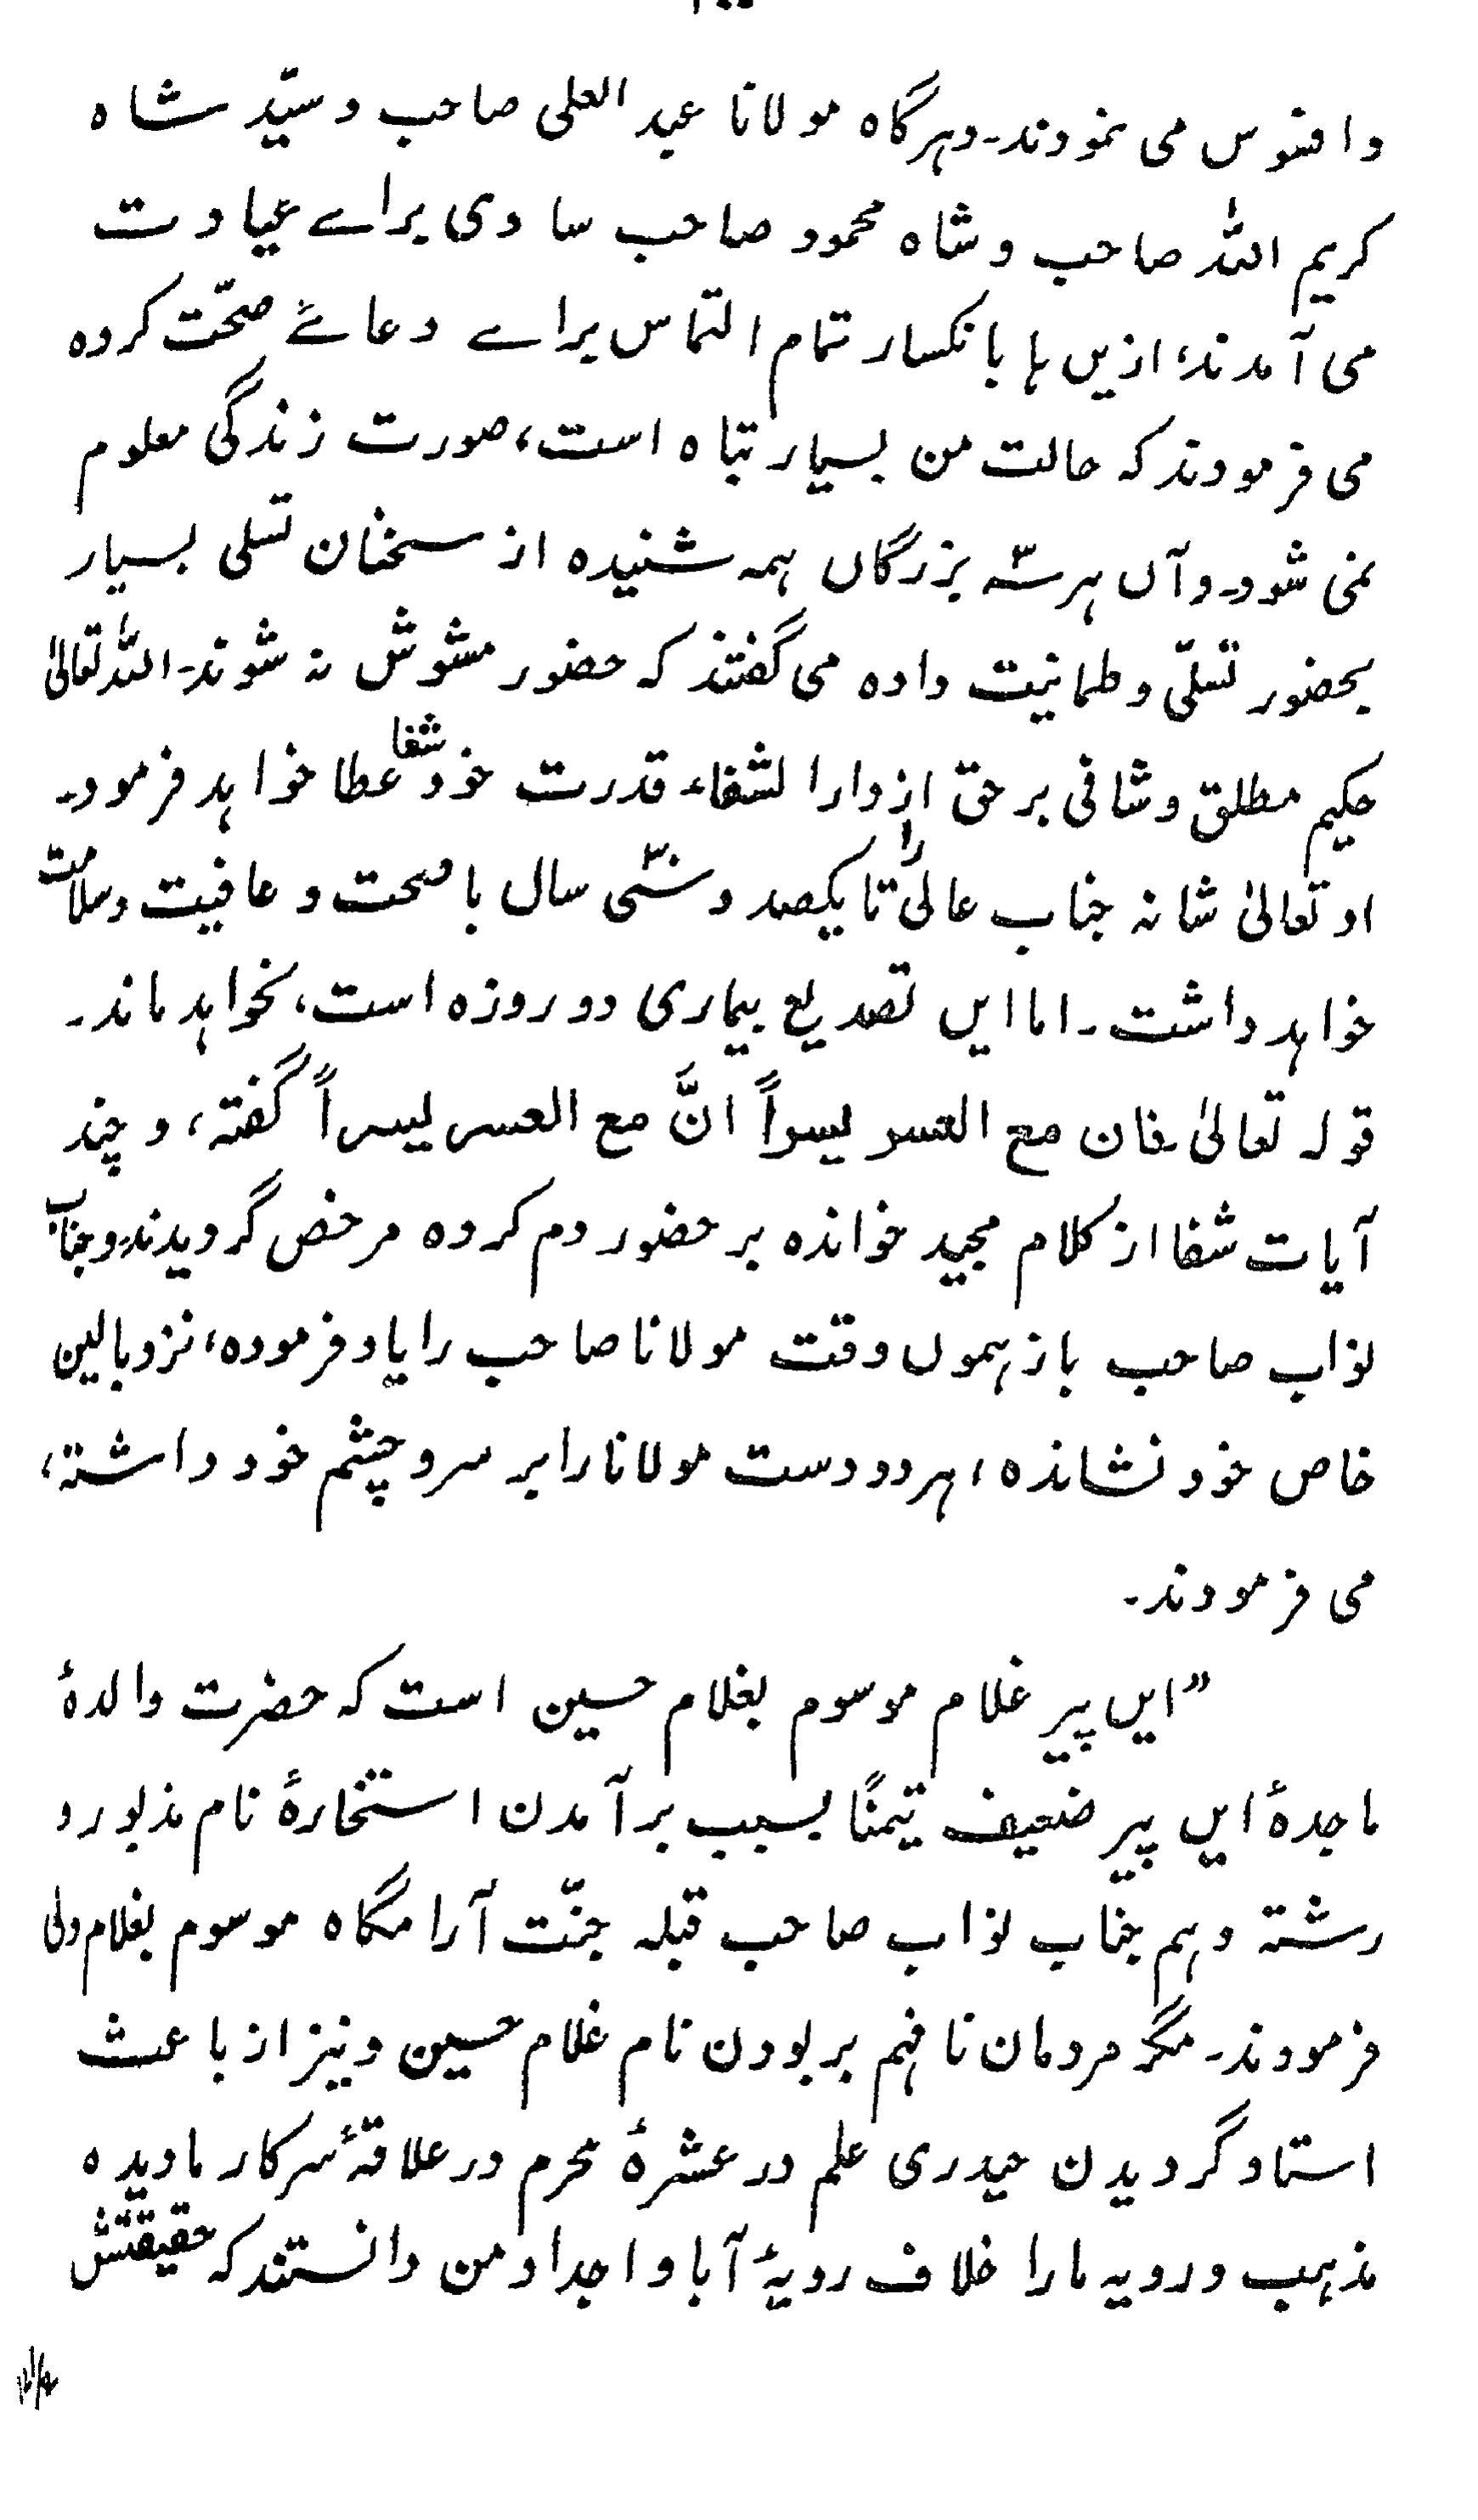 وافسوس می نمودند۔ وہرگاہ مولانا عبد العلی صاحب وسیّد شاہ
کریم اللہ صاحب وشاہ محمود صاحب ساوی براے عیادت
می آمدند، ازیں ہا بانکسار تمام التماس براے دعائے صحّت کردہ
می فرمودند کہ حالت من بسیار تباہ است، صورت زندگی معلوم
نمی شود۔ وآں ہر سّہ بزرگاں ہمہ شنیدہ از سخنان تسلی بسیار
بحضور تسلّی وطمانیت دادہ می گفتند کہ حضور مشوش نہ شوند۔ اللہ تعالیٰ
حکیم مطلق وشافی برحق از دارالشفاء قدرت خود شفا عطا خواہد فرمود۔
او تعالیٰ شانہ جناب عالی را تا یکصد وسّی سال با صحت و عافیت وسلامت
خواہد داشت۔ اما ایں تصدیع بیماری دو روزہ است، نخواہد ماند۔
قولہ تعالیٰ فان مع العسر یسراً انَّ مع العسر یسراً گفتہ، و چند
آیات شفا از کلام مجید خواندہ بر حضور دم کردہ مرخص گردیدند۔ وجناب
نواب صاحب باز ہموں وقت مولانا صاحب را یاد فرمودہ، نزد بالین
خاص خود نشاندہ، ہردو دست مولانا را بر سر و چشم خود داشتہ،
می فرمودند۔
”ایں پیر غلام موسوم بغلام حسین است کہ حضرت والدۂ
ماجدۂ ایں پیر ضعیف تیمنًا بسبب برآمدن استخارۂ نام مذبور و
رشتہ وہم جناب نواب صاحب قبلہ جنّت آرامگاہ موسوم بغلام ولی
فرمودند۔ مگر مردمان نافہم بر بودن نام غلام حسین ونیز از باعث
استاد گردیدن حیدری علم در عشرۂ محرم در علاقۂ سرکار ما دیدہ
مذہب ورویہ مارا خلاف رویۂ آبا و اجداد من دانستند کہ حقیقتش